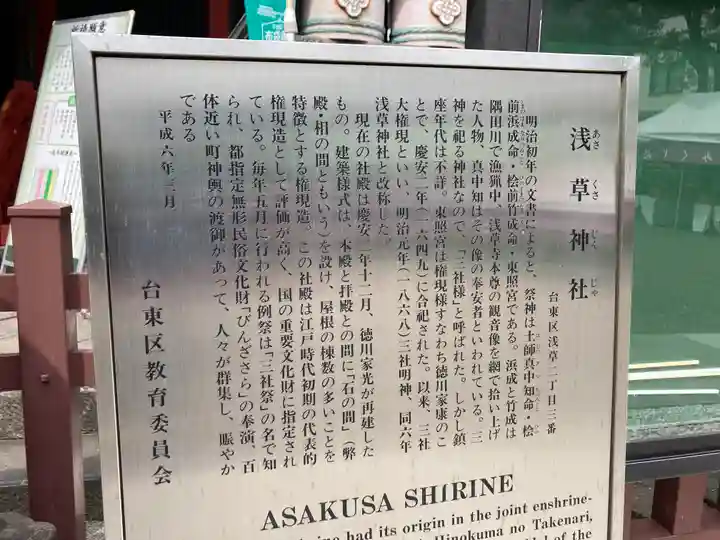 浅草神社
あさくさじんじゃ
台東区浅草二丁目三番
明治初年の文書によると、祭神は土師真中知命・桧
前浜成命・桧前竹成命・東照宮である。浜成と竹成は
隅田川で漁猟中、浅草寺本尊の観音像を網で拾い上げ
た人物、真中知はその像の奉安者といわれている。三
神を祀る神社なので、「三社様」と呼ばれた。しかし鎮
座年代は不詳。東照宮は権現様すなわち徳川家康のこ
とで、慶安二年(一六四九)に合祀された。以来、三社
大権現といい、明治元年(一八六八)三社明神、同六年
浅草神社と改称した。
現在の社殿は慶安二年十二月、徳川家光が再建した
もの。建築様式は、本殿と拝殿との間に「石の間」(弊
殿・相の間ともいう)を設け、屋根の棟数の多いことを
特徴とする権現造。この社殿は江戸時代初期の代表的
権現造として評価が高く、国の重要文化財に指定され
ている。毎年五月に行われる例祭は「三社祭」の名で知
られ、都指定無形民俗文化財「びんざさら」の奉演、百
体近い町神輿の渡御があって、人々が群集し、賑やか
である
平成六年三月
台東区教育委員会
ASAKUSA SHIRINE
had its origin in the joint enshrine-
Hinokuma no Takenari,
of the